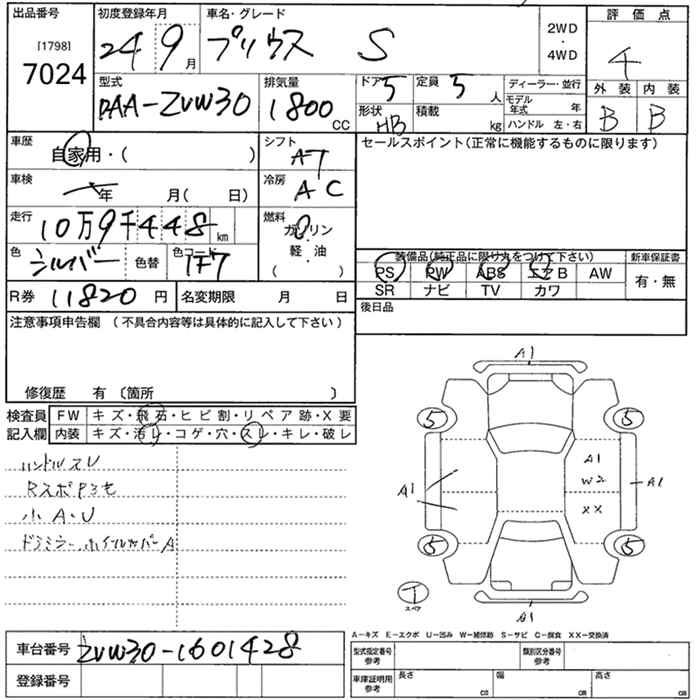 出品番号
[1798]
7024
初度登録年月
24 9月
車名・グレード
プリウス S
2WD
・
4WD
評価点
4
型式
DAA-ZVW30
排気量
1800 CC
ドア 5
定員 5人
形状 HB
積載 kg
ディーラー・並行
モデル年式 年
ハンドル 左・右
外装 内装
B B
車歴
自家用・( )
シフト
AT
車検
年 月( 日)
冷房
AC
走行
10万9千448km
燃料
ガソリン
・
軽・油
( )
色
シルバー
色替
色コード
1F7
R券 11820円
名変期限 月 日
セールスポイント(正常に機能するものに限ります)
装備品(純正品に限り丸をつけて下さい)
PS PW ABS エアB AW
SR ナビ TV カワ
新車保証書
有・無
後日品
注意事項申告欄(不具合内容等は具体的に記入して下さい)
修復歴 有〔箇所 〕
検査員記入欄
FW キズ・飛石・ヒビ割・リペア跡・X要
内装 キズ・汚レ・コゲ・穴・スレ・キレ・破レ
ハンドルスレ
小A・U
ドアミラー、ホイルカバーA
A1
5 5
A1
W2
A1 A1
XX
5 5
T
スペア
A1
A-キズ E-エクボ U-凹み W-補修跡 S-サビ C-腐食 XX-交換済
車台番号 ZVW30-1601428
登録番号
型式指定番号
参考
類別区分番号
参考
車庫証明用
参考
長さ cm
幅 cm
高さ cm